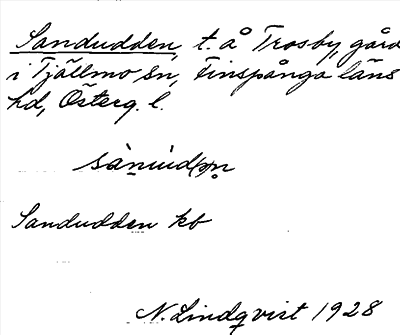 Sandudden, t. å Trosby, gård
i Tjällmo sn, Finspånga läns
hd, Österg. l.
Sandudden kb
N. Lindqvist 1928